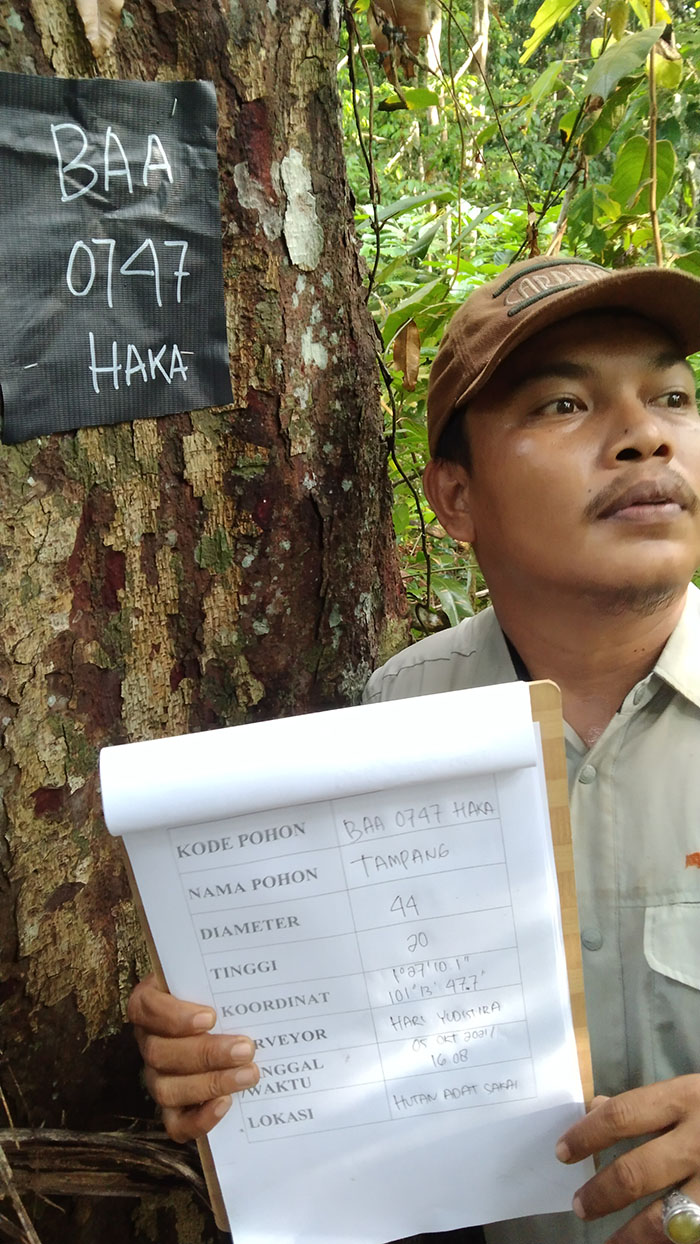 BAA
0747
HAKA
KODE POHON BAA 0747 HAKA
NAMA POHON TAMPANG
DIAMETER 44
TINGGI 20
KOORDINAT 1°27'10.1"
101°13' 47.7"
RVEYOR HARI YUDISTIRA
NGGAL 05 OKT 2021/
/WAKTU 16 08
LOKASI HUTAN ADAT SAKAI